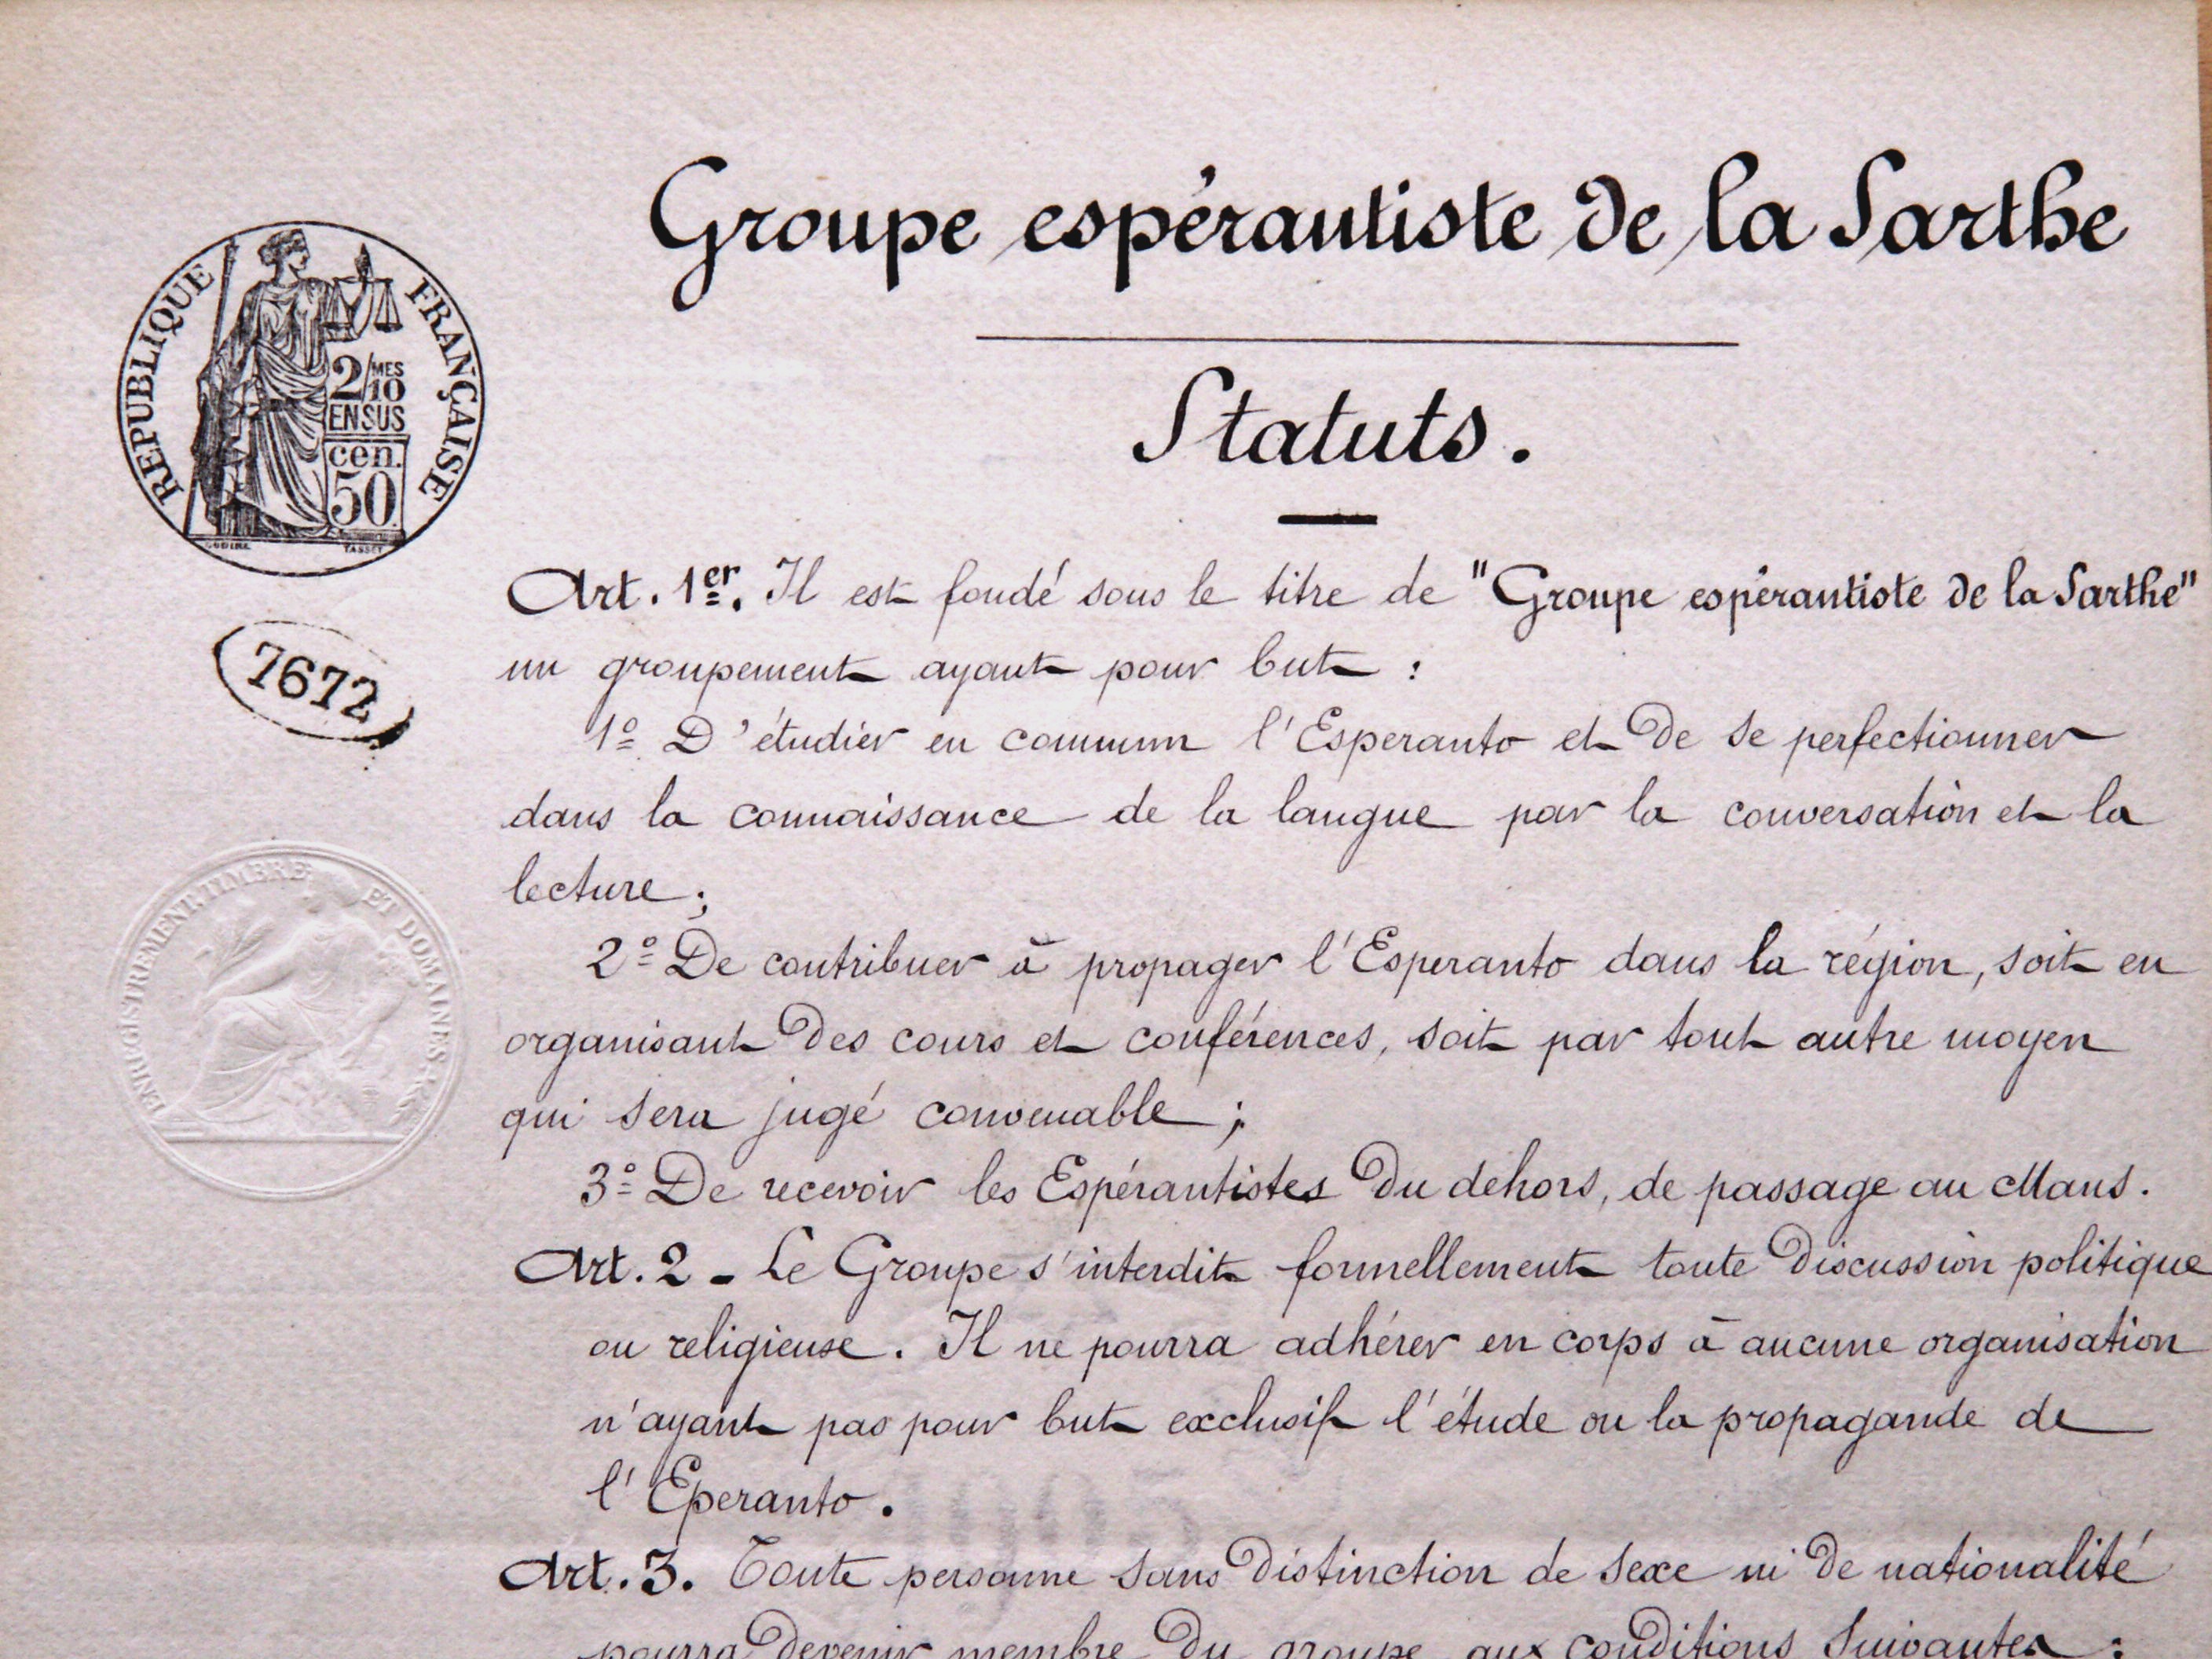 Groupe espérantiste de la Sarthe
Statuts.
REPUBLIQUE FRANÇAISE
2/MES 10
EN SUS
cen.
50
TASSET
7672
ENREGISTREMENT, TIMBRE ET DOMAINES
Art. 1er. Il est fondé sous le titre de "Groupe espérantiste de la Sarthe"
un groupement ayant pour but :
1º D'étudier en commun l'Esperanto et de se perfectionner
dans la connaissance de la langue par la conversation et la
lecture ;
2º De contribuer à propager l'Esperanto dans la région, soit en
organisant des cours et conférences, soit par tout autre moyen
qui sera jugé convenable ;
3º De recevoir les Espérantistes du dehors, de passage au Mans.
Art. 2 - Le Groupe s'interdit formellement toute discussion politique
ou religieuse. Il ne pourra adhérer en corps à aucune organisation
n'ayant pas pour but exclusif l'étude ou la propagande de
l'Eperanto.
Art. 3. Toute personne sans distinction de sexe ni de nationalité
pourra devenir membre du groupe aux conditions suivantes :